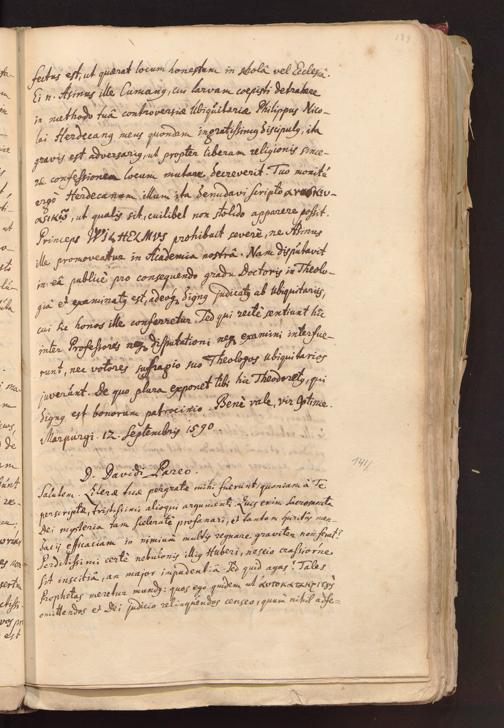 189
fectus est, ut quærat locum honestum in scholâ vel Ecclesiâ.
Ei n. Asinus ille Cumanus, cui larvam coepisti detrahere
in methodo tuâ controversiæ Ubiquitariæ Philippus Nico-
lai Herdecanus meus quondam ingratissimus discipulus, ita
gravis est adversarius, ut propter liberam religionis since-
ræ confessionem locum mutare decreverit. Tuo monitu
ergo Herdecanum illum ita denudavi scripto
ut qualis sit, cuilibet non stolido apparere possit.
Princeps WILHELMVS prohibuit severè, ne Asinus
ille promoveatur in Academia nostrâ. Nam disputavit
in eâ publicè pro consequendo gradu Doctoris in Theolo-
gia et examinatus est, adeoque dignus judicatus ab Ubiquitariis,
cui hic honos ille conferretur. Sed qui rectè sentiunt hîc
inter Professores neque disputationi neque examini interfue-
runt, nec votores suffragio suo Theologos Ubiquitarios
juverunt. De quo plura exponet tibi hic Theodoretus, qui
dignus est bonorum patrocinio. Benè vale, vir Optime.
Marpurgi. 12. Septembris 1590
D. Davidi Pareo.
Salutem. Literæ tuæ pergratæ mihi fuerunt, quoniam à Te
perscriptæ, tristissimi alioqui argumenti. Quis enim sacrosancta
Dei mysteria tam scelerate profanari, et tantam spiritus men-
dacij efficaciam in nimium multis regnare graviter non ferat?
Perditissimi certè nebulonis illius Huberi, nescio crassiorne
sit inscitia, an major impudentia. Sed quid agas? Tales
Prophetas meretur mundus: quos ego quidem ut
omittendos et Dei judicio relinquendos censeo, quum nihil adfe-
141/